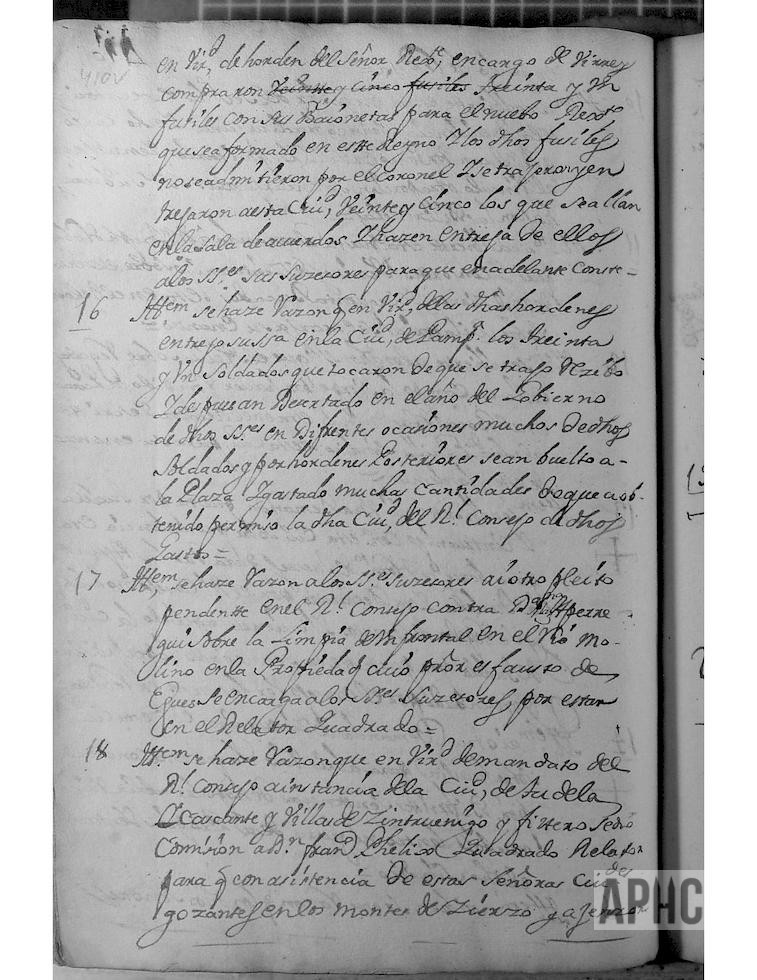 410v
en Vird, de horden del Señor Regte, encargo de Virrey
compraron Veintte y Cinco fusiles treinta y Un
fusiles con sus Baionetas para el nuebo Regto
que sea formado en estte Reyno Y los dhos fusiles
no se admitieron por el Coronel Y se trajeron y en
tregaron aesta Ciud, Veinte y Cinco los que se allan
en la Sala de acuerdos Y hazen entrega de ellos
alos SSes sus Suzesores para que en adelante Conste -
16 Ittem se haze Razon q en Vird, delas dhas hordenes
entrego su SSa en la Ciud, de Pampa. los treinta
y Un Soldados que tocaron de que se trajo Rezibo
Y despues an Desertado en el año del Gobierno
de dhos SSes en Difrentes ocasiones muchos de dhos
Soldados y por hordenes Posteriores se an buelto a-
la Plaza Y gastado muchas Cantidades de que a ob-
tenido permiso la dha Ciud, del Rl Consejo de dhos
Gastos =
17 Ittem, se haze Razon alos SSes Suzesores ai otro pleito
pendentte en el Rl Consejo Contra Dn Atperre
gui Sobre la Limpia de su frontal en el Rio mo-
lino en la Propiedad q cuio pror es fausto de
Egues se encarga alos SSes Suzesores por estar
en el Relator Quadrado =
18 Ittem se haze Razon que en Vird de mandato del
Rl Consejo a instancia dela Ciud, de tudela
Cascante y Villas de Zintruenigo y fittero se dio
Comision a Dn frand Phelix Quadrado Relator
para q con asistencia de estas Señoras Ciudes
gozantes en los montes de Zierzo y a
APHC